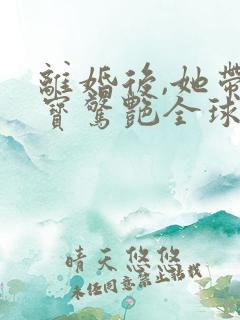 離婚後,她帶
寶驚艷全球
晴天悠悠
未经同意禁止转载